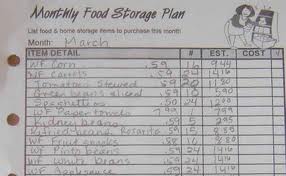 Monthly Food Storage Plan
List food & home storage items to purchase this month
Month: March
ITEM DETAIL # EST. COST
WF Corn .59 16 944
WF Carrots .59 24 1416
Tomatoes Stewed .59 20 1180
Green beans sliced .59 10 590
Spaghettios .50 24 1200
WF Paper towels 7.99 799
Kidney beans .59 5 295
Refried beans Rosarita .59 15 885
WF Fruit snacks .88 10 880
WF Pinto beans .59 24 1416
WF White beans .59 24 1416
WF Applesauce .59 24 1416